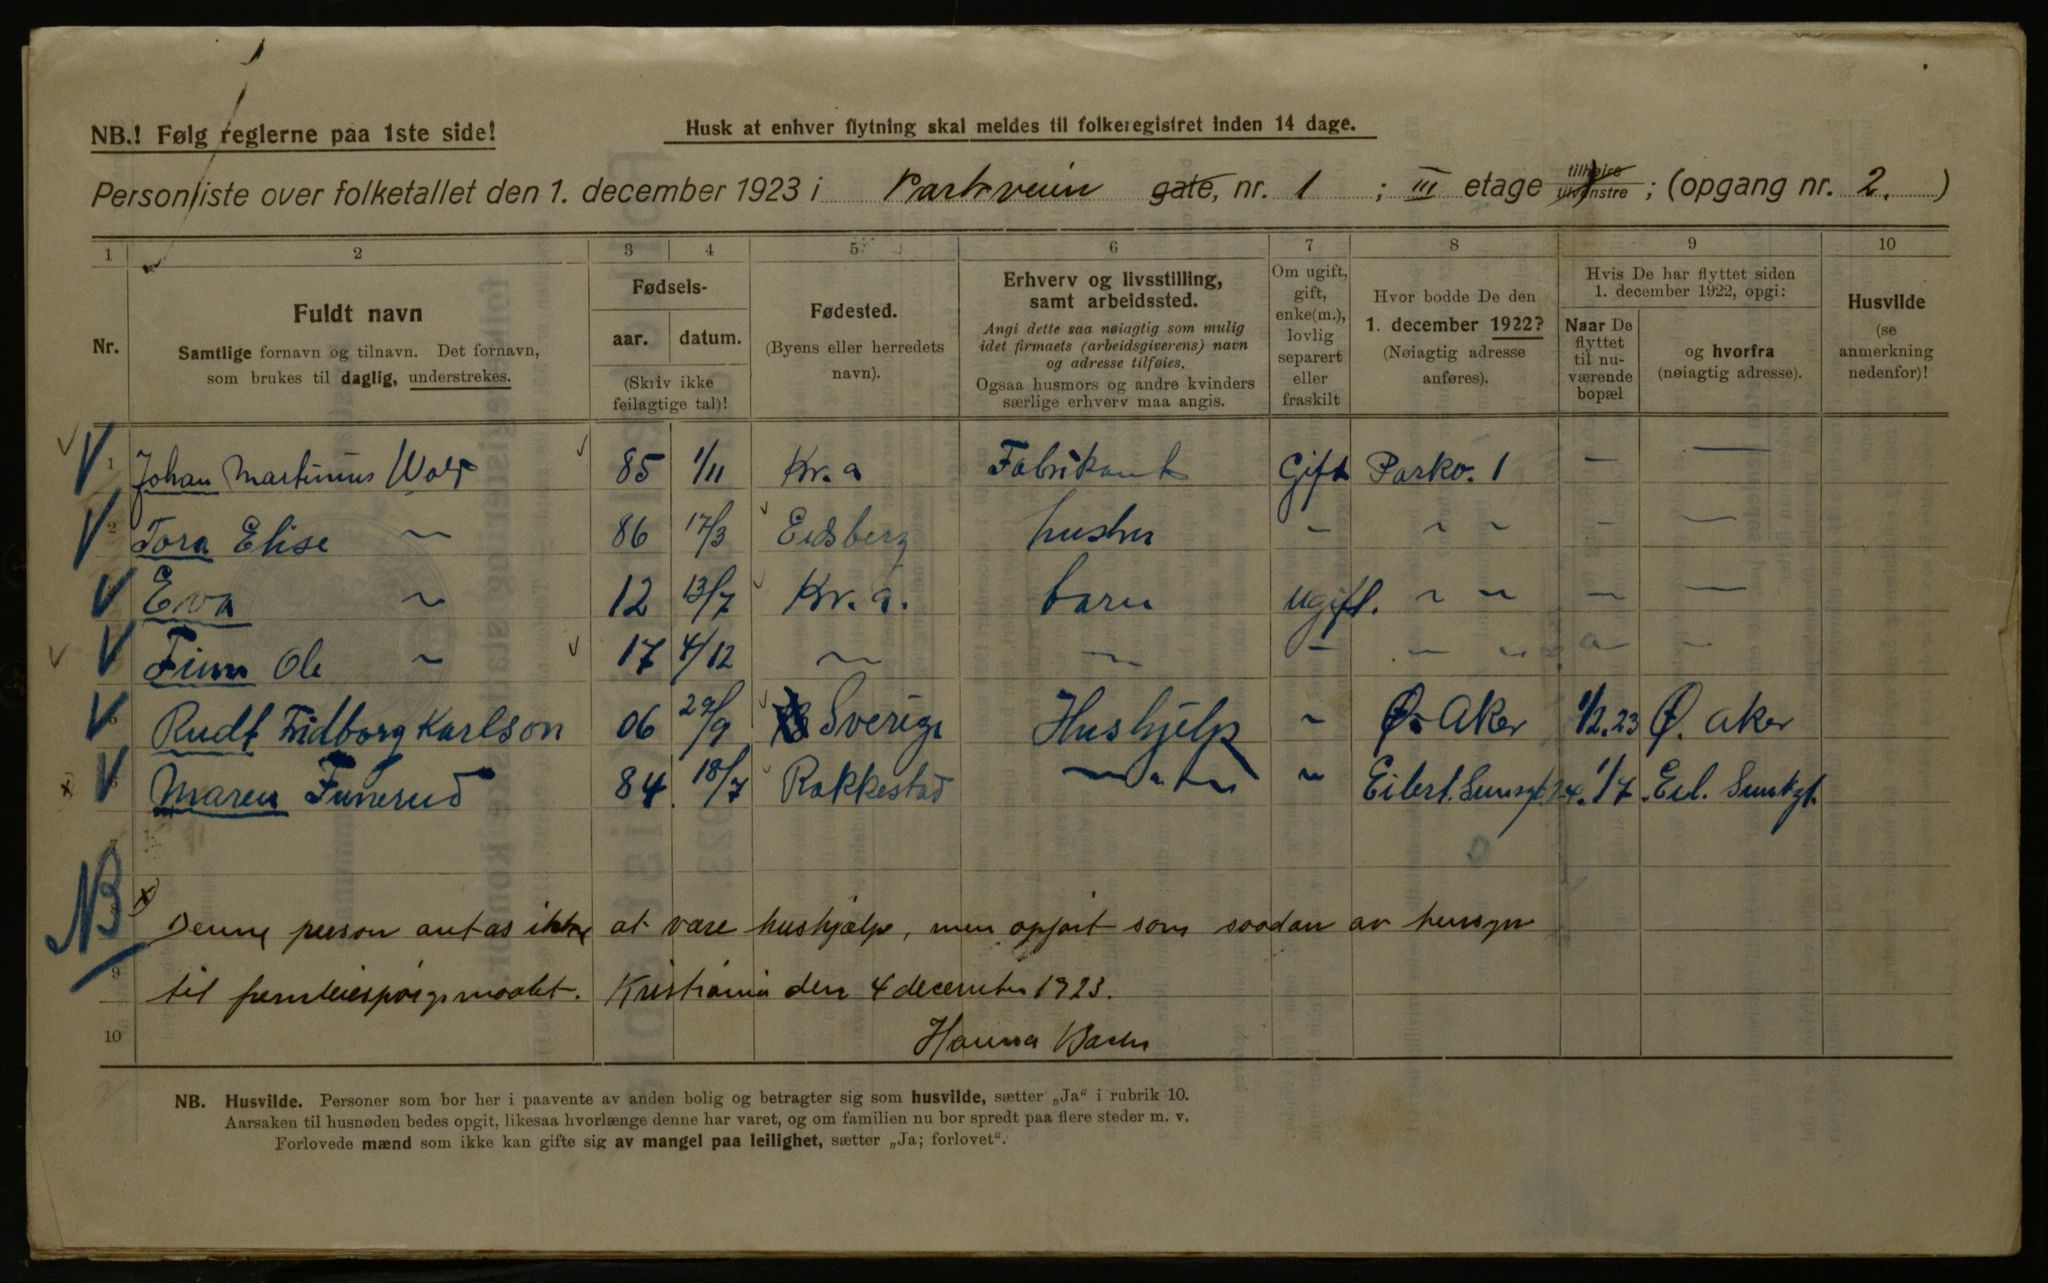 NB.! Følg reglerne paa 1ste side!
Husk at enhver flytning skal meldes til folkeregistret inden 14 dage.
Personliste over folketallet den 1. december 1923 i Parkveien gate, nr. 1 ; III etage tilhøire tilvenstre ; (opgang nr. 2. )
1 2 3 4 5 6 7 8 9 10
Nr.
Fuldt navn
Samtlige fornavn og tilnavn. Det fornavn,
som brukes til daglig, understrekes.
Fødsels-
aar. datum.
(Skriv ikke
feilagtige tal)!
Fødested.
(Byens eller herredets
navn).
Erhverv og livsstilling,
samt arbeidssted.
Angi dette saa nøiagtig som mulig
idet firmaets (arbeidsgiverens) navn
og adresse tilføies.
Ogsaa husmors og andre kvinders
særlige erhverv maa angis.
Om ugift,
gift,
enke(m.),
lovlig
separert
eller
fraskilt
Hvor bodde De den
1. december 1922?
(Nøiagtig adresse
anføres).
Hvis De har flyttet siden
1. december 1922, opgi:
Naar De
flyttet
til nu-
værende
bopæl
og hvorfra
(nøiagtig adresse).
Husvilde
(se
anmerkning
nedenfor)!
1 Johan Martinius 85 1/11 Kr.a Fabrikant Gift Parkv. 1 — —
2 Tora Elise ~ 86 17/3 Eidsberg hustru ~ ~ ~ — —
Eva ~ 12 13/7 Kr.a. barn ugift. ~ ~ — —
Finn Ole ~ 17 4/12 ~ ~ ~ ~ ~ —
Rudt Fridborg Karlson 06 29/9 Sverige Hushjelp ~ Ø. Aker 1/2.23 Ø. Aker
Maren 84. 18/7 Rakkestad ~ " ~ ~ Eilert. 24. 1/7. Eil. Suntsgt.
7
NB x) Denne person antas ikke at være hushjælp, men opført som saadan av hensyn
9 til fremleiespørgsmaalet. Kristiania den 4 december 1923.
10 Hanna
NB. Husvilde. Personer som bor her i paavente av anden bolig og betragter sig som husvilde, sætter „Ja“ i rubrik 10.
Aarsaken til husnøden bedes opgit, likesaa hvorlænge denne har varet, og om familien nu bor spredt paa flere steder m. v.
Forlovede mænd som ikke kan gifte sig av mangel paa leilighet, sætter „Ja; forlovet“.